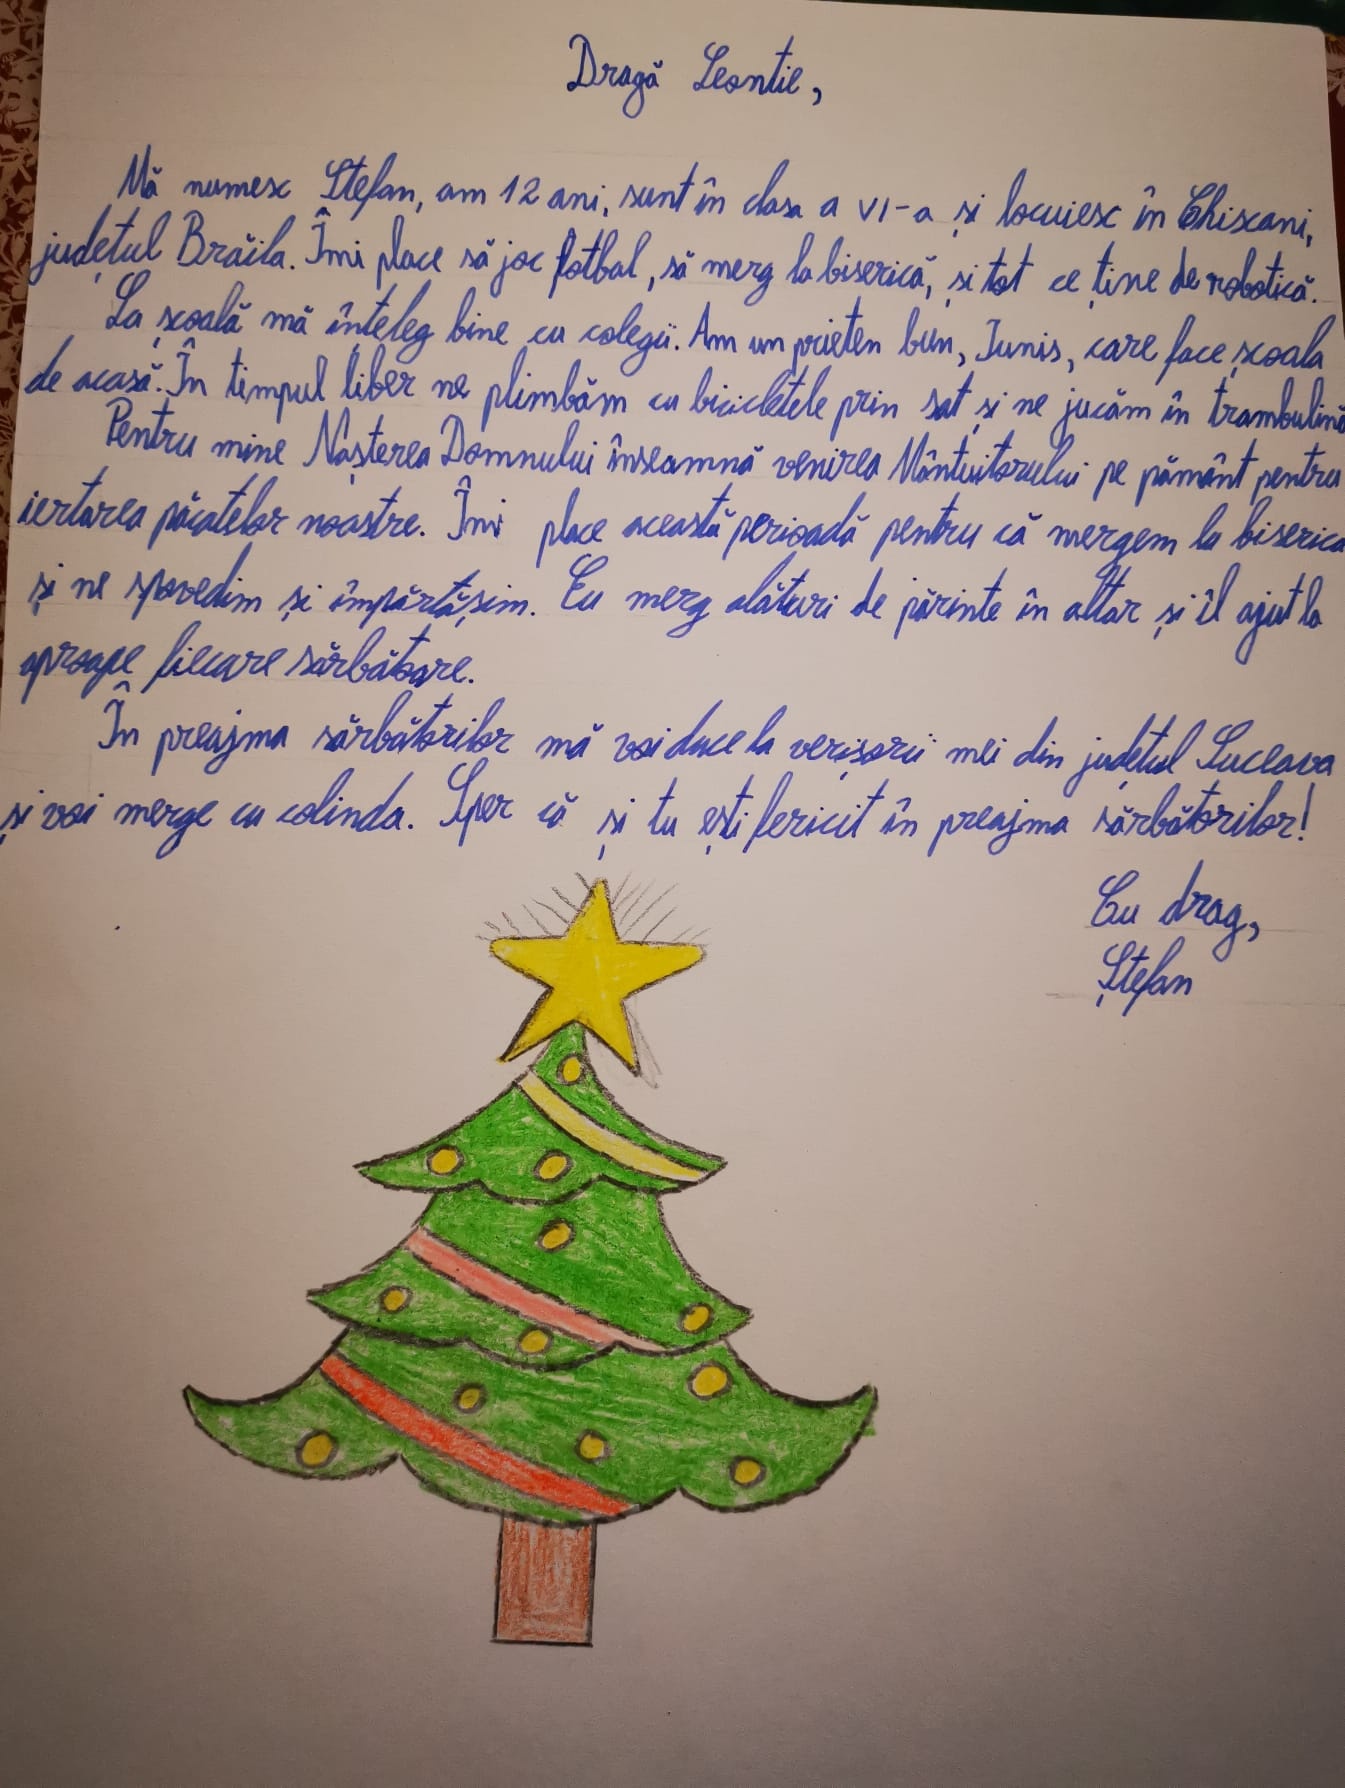 Dragă Leontie,
Mă numesc Ștefan, am 12 ani, sunt în clasa a VI-a și locuiesc în Chiscani,
județul Brăila. Îmi place să joc fotbal, să merg la biserică, și tot ce ține de robotică.
La școală mă înțeleg bine cu colegii. Am un prieten bun, Iunis, care face școala
de acasă. În timpul liber ne plimbăm cu bicicletele prin sat și ne jucăm în trambulină
Pentru mine Nașterea Domnului înseamnă venirea Mântuitorului pe pământ pentru
iertarea păcatelor noastre. Îmi place această perioadă pentru că mergem la biserica
și ne spovedim și împărtășim. Eu merg alături de părinte în altar și îl ajut la
aproape fiecare sărbătoare.
În preajma sărbătorilor mă voi duce la verișorii mei din județul Suceava
și voi merge cu colinda. Sper că și tu ești fericit în preajma sărbătorilor!
Cu drag,
Ștefan